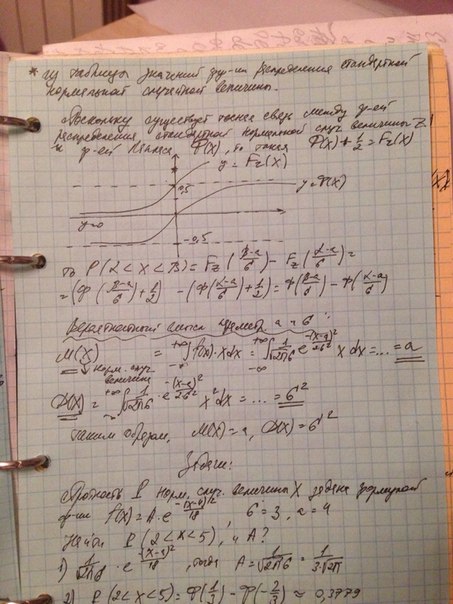 * из таблицы значений ф-ии распределения стандартной
нормальной случайной величины.
Поскольку существует тесная связь между ф-ей
распределения стандартной нормальной случ величины Z
и ф-ей Лапласа Φ(x), то такая Φ(x)+1/2=Fz(x)
y=Fz(x)
0,5
y=Φ(x)
y=0
-0,5
то P(α<x<β)=Fz((β-a)/σ)-Fz((α-a)/σ)=
=(Φ((β-a)/σ)+1/2)-(Φ((α-a)/σ)+1/2)=Φ((β-a)/σ)-Φ((α-a)/σ)
Вероятностный смысл a и σ:
M(X) = ∫f(x)·xdx = ∫ 1/(√2π σ) e^(-(x-a)²/2σ²) x dx=...=a
норм. случ.
величина
D(X)= ∫ 1/(√2π σ) · e^(-(x-a)²/2σ²) x² dx=...=σ²
таким образом, M(X)=a, D(X)=σ²
Задачи:
Плотность P норм. случ. величины X задана формулой
ф-ии f(x)=A·e^(-(x-4)²/18), σ=3, a=4
Найти P(2<x<5), и A?
1) 1/(√2π σ) · e^(-(x-4)²/18), тогда A=1/(√2π σ)=1/(3·√2π)
2) P(2<x<5)=Φ(1/3)-Φ(-2/3)≈0,3779